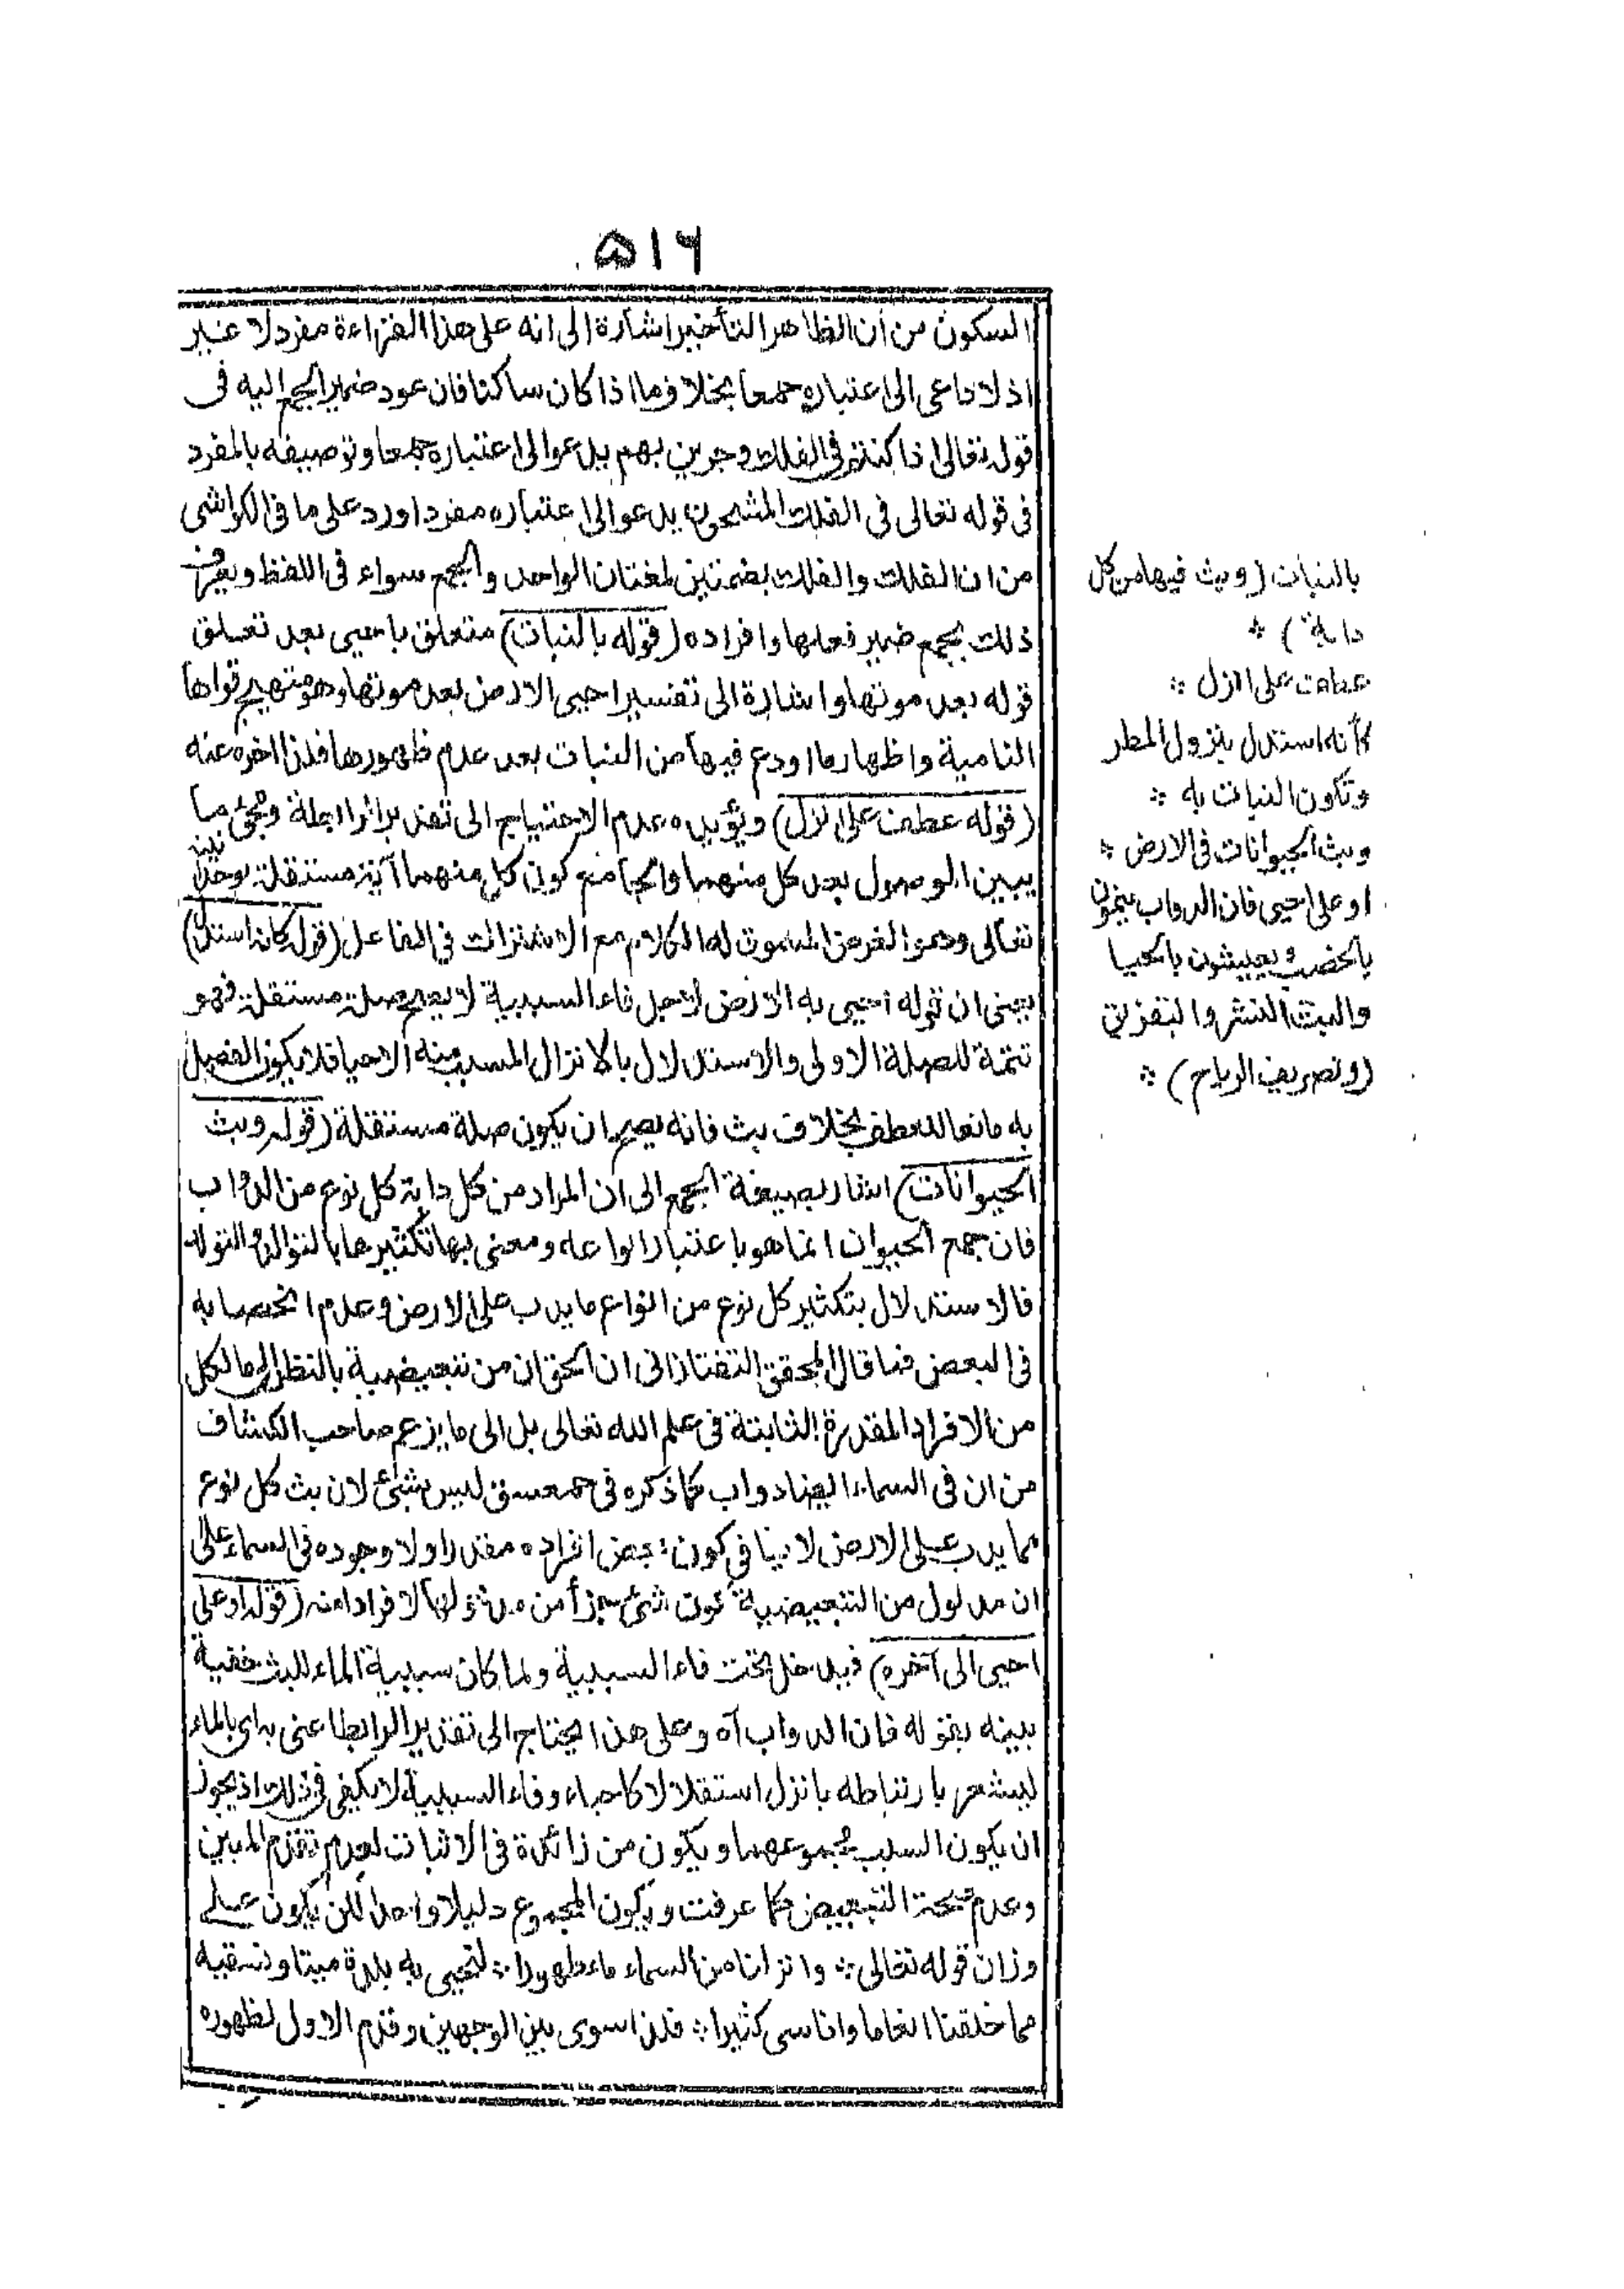 ۵۱۶
السكون من ان الظاهر التأخير اشارة الى انه على هذا القراءة مفرد لا غير
اذ لا داعى الى اعتباره جمعا بخلاف ما اذا كان ساكنا فان عود ضمير الجمع اليه فى
قوله تعالى اذا كنتم فى الفلك وجرين بهم يدعو الى اعتباره جمعا وتوصيفه بالمفرد
فى قوله تعالى فى الفلك المشحون يدعو الى اعتباره مفردا ورد على ما فى الكواشى
من ان الفلك والفلك بضمتين لغتان الواحد والجمع سواء فى اللفظ ويعرف
ذلك بجمع ضمير فعلها وافراده (قوله بالنبات) متعلق باحيى بعد تعلق
قوله بعد موتها واشارة الى تفسير احيى الارض بعد موتها وهو تهييج قواها
النامية واظهار ما اودع فيها من النبات بعد عدم ظهورها فلذا اخره عنه
(قوله عطف على انزل) ويؤيده عدم الاحتياج الى تقدير الرابطة ومجئ ما
يبين الوصول بعد كل منهما والجامع كون كل منهما آية مستقلة لوحدانيته
تعالى وهو الغرض المسوق له الكلام مع الاشتراك فى الفاعل (قوله كانه استدل)
يعنى ان قوله احيى به الارض لاجل فاء السببية لا يصح صلة مستقلة فهو
تتمة للصلة الاولى والاستدلال بالانزال المسبب منه الاحيا فلا يكون الفصل
به مانعا للعطف بخلاف بث فانه يصح ان يكون صلة مستقلة (قوله وبث
الحيوانات) اشار بصيغة الجمع الى ان المراد من كل دابة كل نوع من الدواب
فان جمع الحيوان انما هو باعتبار انواعه ومعنى بثها تكثيرها بالتوالد والتولد
فالاستدلال بتكثير كل نوع من انواع ما يدب على الارض وعدم انحصاره
فى البعض فما قال المحقق التفتازانى ان الحق ان من تبعيضية بالنظر الى ما لكل
من الافراد المقدرة الثابتة فى علم الله تعالى بل الى ما يزعم صاحب الكشاف
من ان فى السماء ايضا دواب كما ذكره فى حمعسق ليس بشئ لان بث كل نوع
مما يدب على الارض لا ينافى كون بعض افراده مقدرا ولا وجوده فى السماء على
ان مدلول من التبعيضية كون شئ جزأ من مدخولها لا فردا منه (قوله او على
احيى الى آخره) فيدخل تحت فاء السببية ولما كان سببية الماء للبث خفية
بينه بقوله فان الدواب آه وعلى هذا يحتاج الى تقدير الرابط اعنى به اى بالماء
ليشعر بارتباطه بانزل استقلالا كاحياء وفاء السببية لا يكفى فى ذلك اذ يجوز
ان يكون السبب مجموعهما ويكون من زائدة فى الاثبات لعدم تقدم المبين
وعدم صحة التبعيض كما عرفت ويكون المجموع دليلا واحدا لكن يكون على
وزان قوله تعالى ؞ وانزلنا من السماء ماء طهورا ؞ لنحيى به بلدة ميتا ونسقيه
مما خلقنا انعاما واناسى كثيرا ؞ فلذا سوى بين الوجهين وقدم الاول لظهوره
بالنبات (وبث فيها من كل
دابة) ؞
عطف على انزل ؞
كأنه استدل بنزول المطر
وتكون النبات به ؞
وبث الحيوانات فى الارض ؞
او على احيى فان الدواب ينمون
بالخصب ويعيشون بالحيا
والبث النشر والتفريق
(وتصريف الرياح) ؞